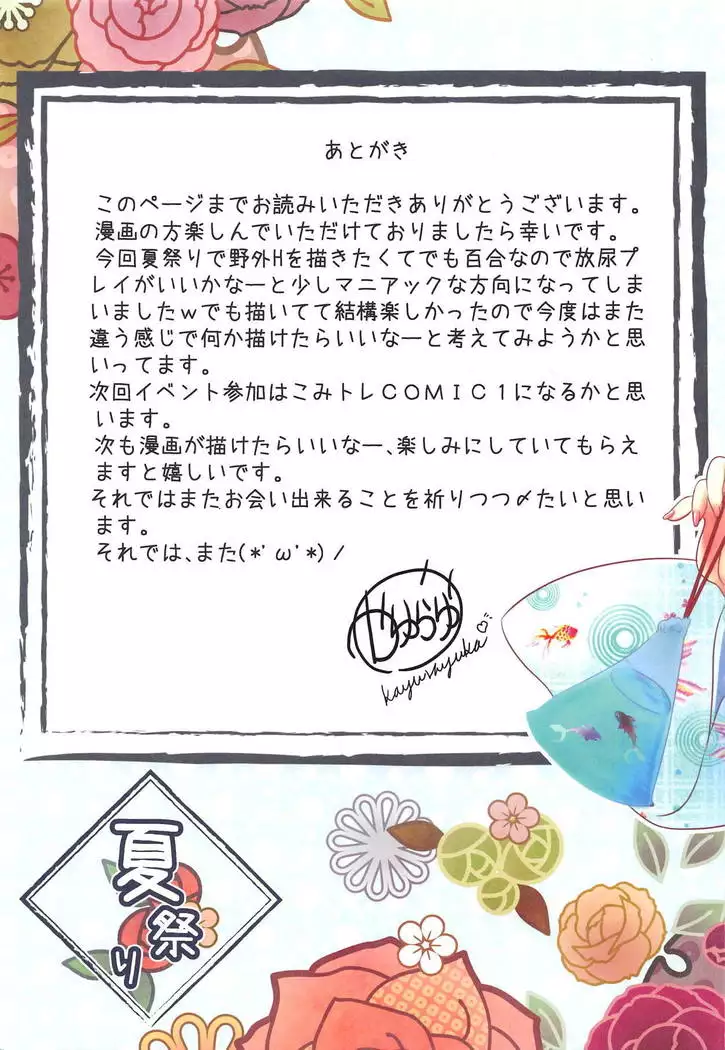 あとがき
このページまでお読みいただきありがとうございます。
漫画の方楽しんでいただけておりましたら幸いです。
今回夏祭りで野外Hを描きたくてでも百合なので放尿プ
レイがいいかなーと少しマニアックな方向になってしま
いましたｗでも描いてて結構楽しかったので今度はまた
違う感じで何か描けたらいいなーと考えてみようかと思
いってます。
次回イベント参加はこみトレＣＯＭＩＣ１になるかと思
います。
次も漫画が描けたらいいなー、楽しみにしていてもらえ
ますと嬉しいです。
それではまたお会い出来ることを祈りつつ〆たいと思い
ます。
それでは、また(*'ω'*)ﾉ
かゆらゆか
kayurayuka
夏祭り